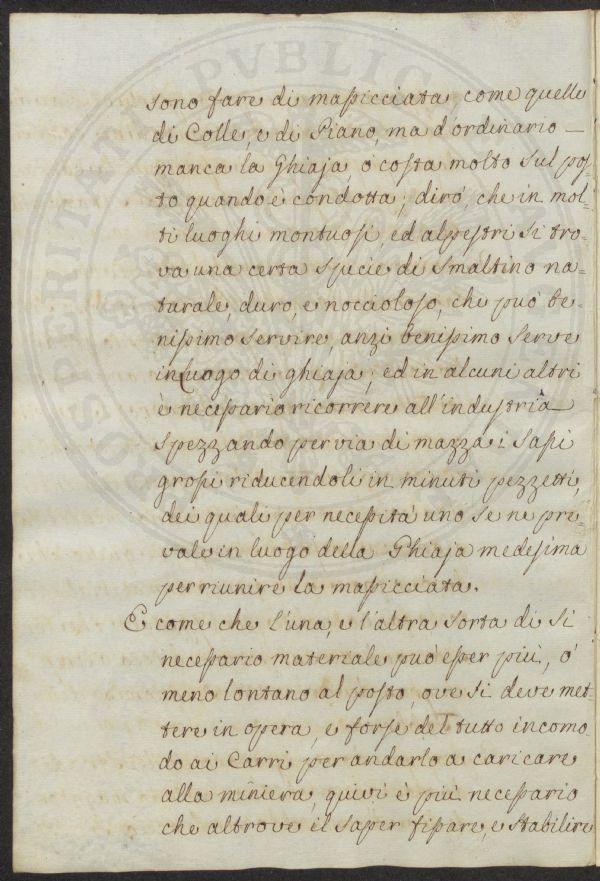 sono fare di massicciata, come quelle
di Colle, e di Piano, ma d'ordinario —
manca la Ghiaja, o costa molto sul pos=
to quando è condotta; dirò, che in mol=
ti luoghi montuosi, ed alpestri si tro=
va una certa specie di smaltino na=
turale, duro, e noccioloso, che può be=
nissimo servire, anzi benissimo serve
in luogo di ghiaja; ed in alcuni altri
è necessario ricorrere all'industria
spezzando per via di mazza i sassi
grossi riducendoli in minuti pezzetti,
dei quali per necessità uno se ne pre=
vale in luogo della Ghiaja medesima
per riunire la massicciata.
E come che l'una, e l'altra sorta di sì
necessario materiale può esser più, ò
meno lontano al posto, ove si deve met=
tere in opera, e forse del tutto incomo=
do ai Carri per andarlo a caricare
alla miniera, quivi è più necessario
che altrove il saper fissare, e stabilire
PROSPERITATI PVBLICAE